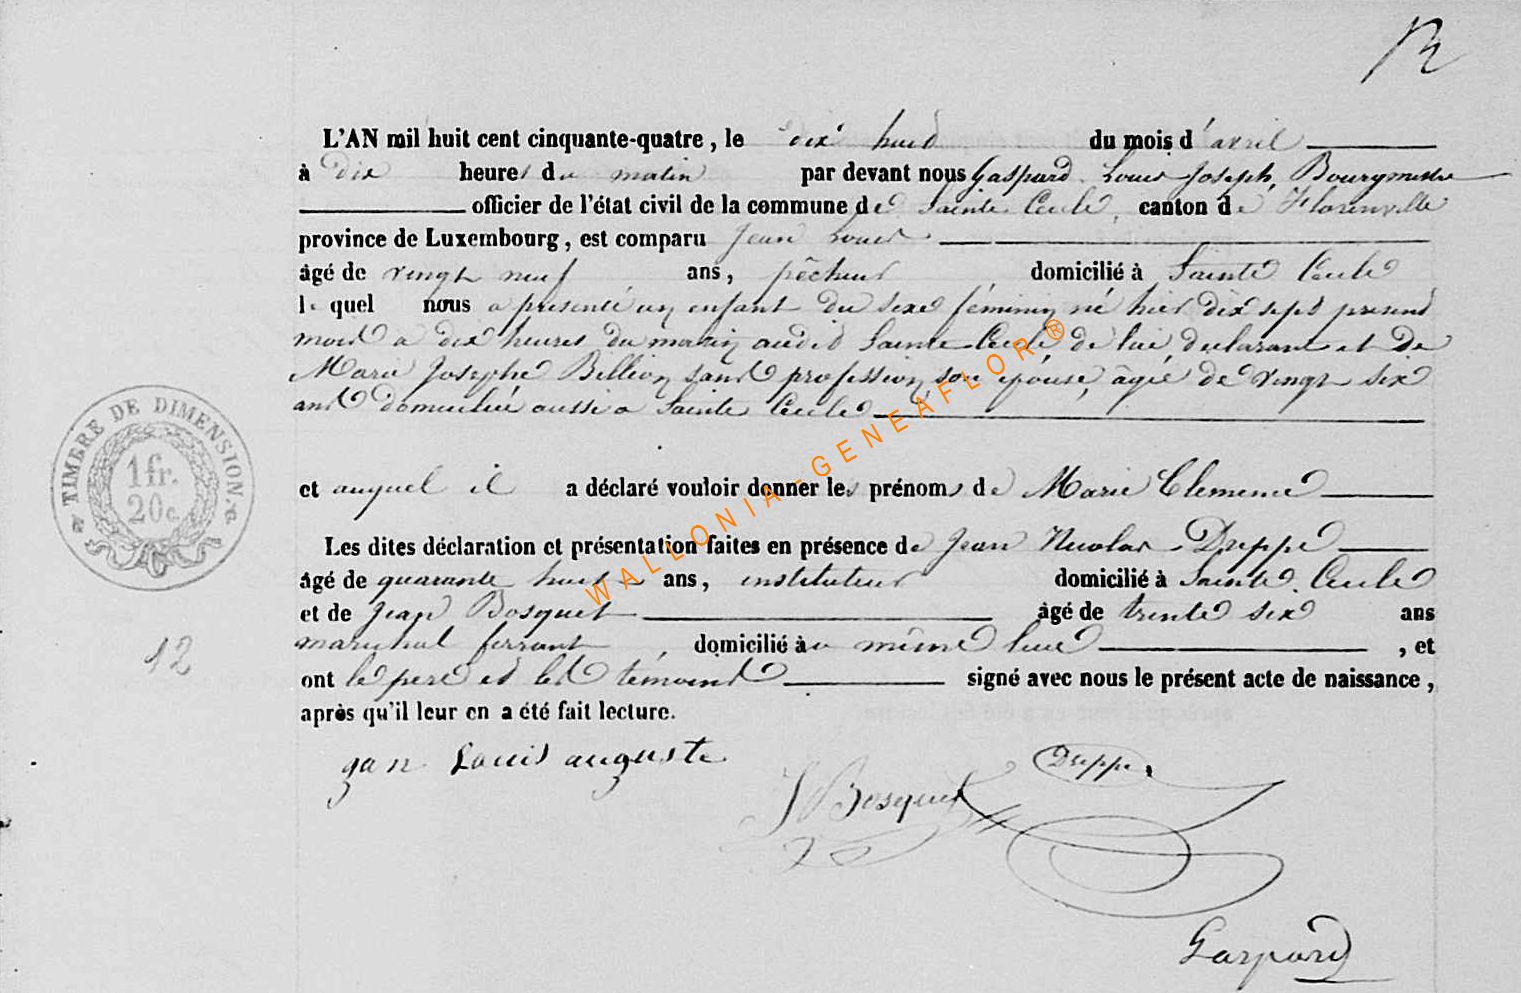 L'AN mil huit cent cinquante-quatre, le dix huit du mois d'avril
à dix heures du matin par devant nous Gaspard Louis Joseph, Bourgmestre
officier de l'état civil de la commune de Sainte Cecile, canton de Florenville
province de Luxembourg, est comparu Jean Louis
âgé de vingt neuf ans, pêcheur domicilié à Sainte Cecile
lequel nous a présenté un enfant du sexe féminin né hier dix sept présent
mois a dix heures du matin audit Sainte Cecile, de lui, déclarant et de
Marie Josephe Billion sans profession, son épouse, âgée de vingt six
ans domiciliée aussi a Sainte Cecile
et auquel il a déclaré vouloir donner les prénoms de Marie Clemence
Les dites déclaration et présentation faites en présence de Jean Nicolas Dreppe
âgé de quarante huit ans, instituteur domicilié à Sainte Cecile
et de Jean Bosquet âgé de trente six ans
marechal ferrant, domicilié au même lieu, et
ont le pere et les témoins signé avec nous le présent acte de naissance,
après qu'il leur en a été fait lecture.
gan Louis auguste
J Bosquet
Dreppe
Gaspard
TIMBRE DE DIMENSION.
1 fr.
20 c.
12
WALLONIA-GENEAFLOR®